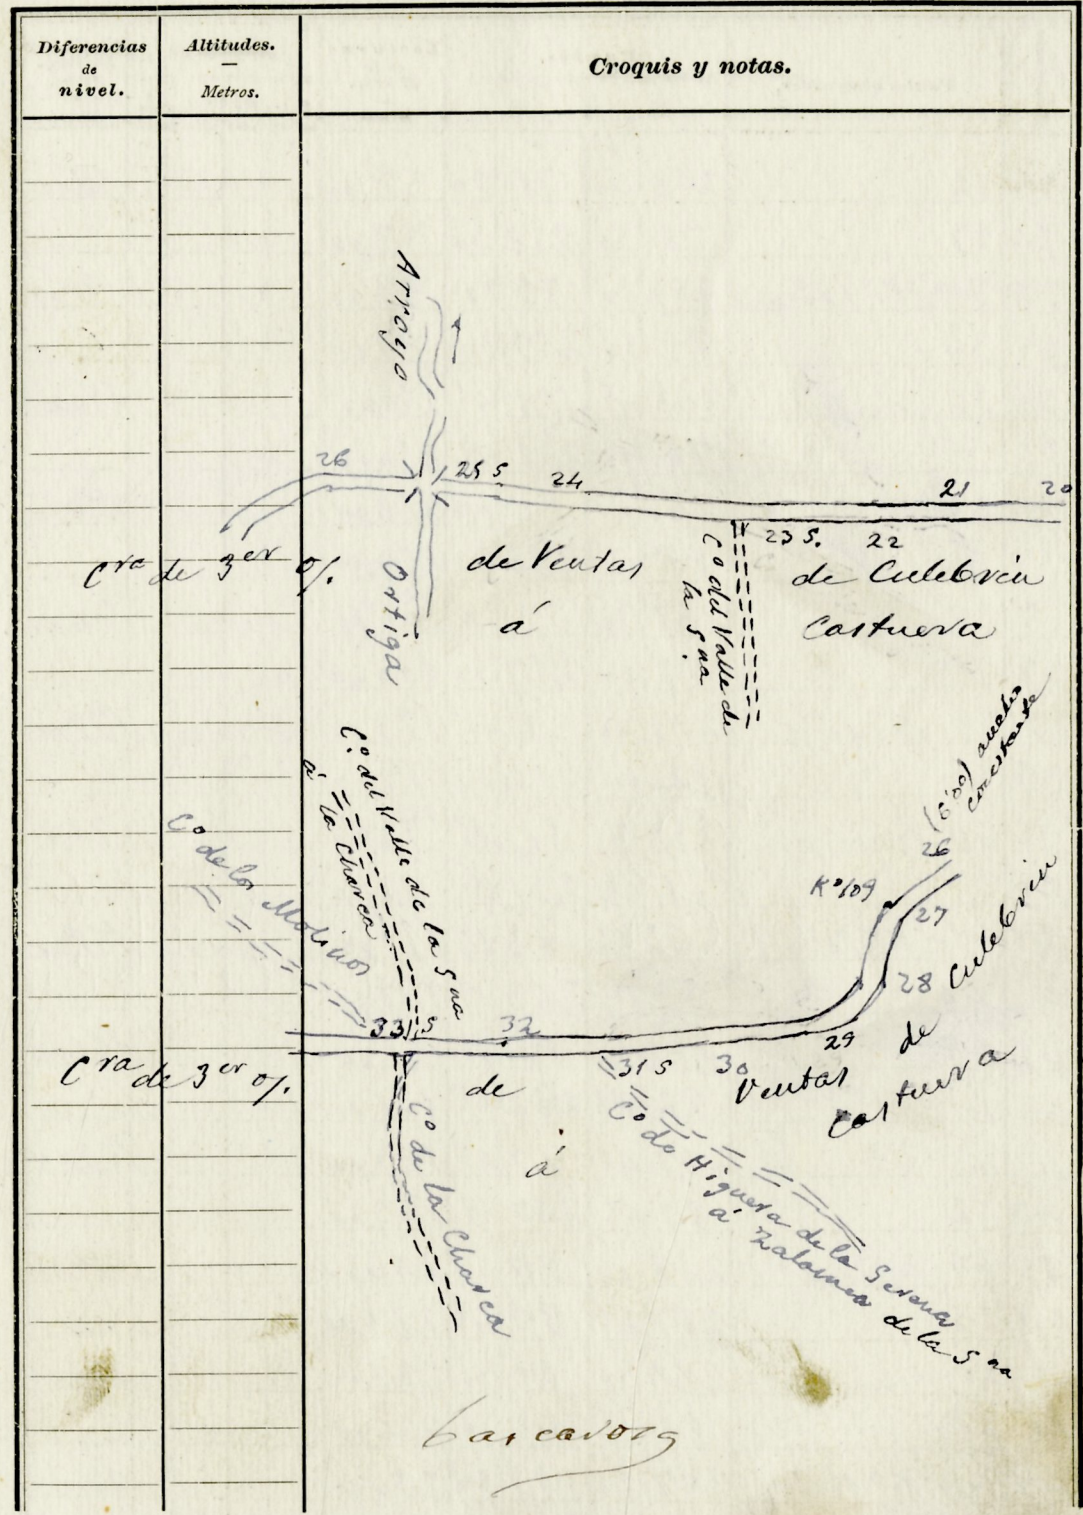 Diferencias
de
nivel.
Altitudes.
—
Metros.
Croquis y notas.
Arroyo
Ortiga
26
25 S
24
21
20
23 S.
22
Cra de 3er o/. de Ventas de Culebrin
á Castuera
Co del Valle de
la Sna
Co del Valle de la Sna
á la Charca
Co de los Molinos
(6'00) ancho
constante
26
Ko 109
27
28
29
30
31 S
32
33 S
Cra de 3er o/. de Ventas de Culebrin
á Castuera
Co de la Charca
Co de Higuera de la Serena
á Zalamea de la Sna